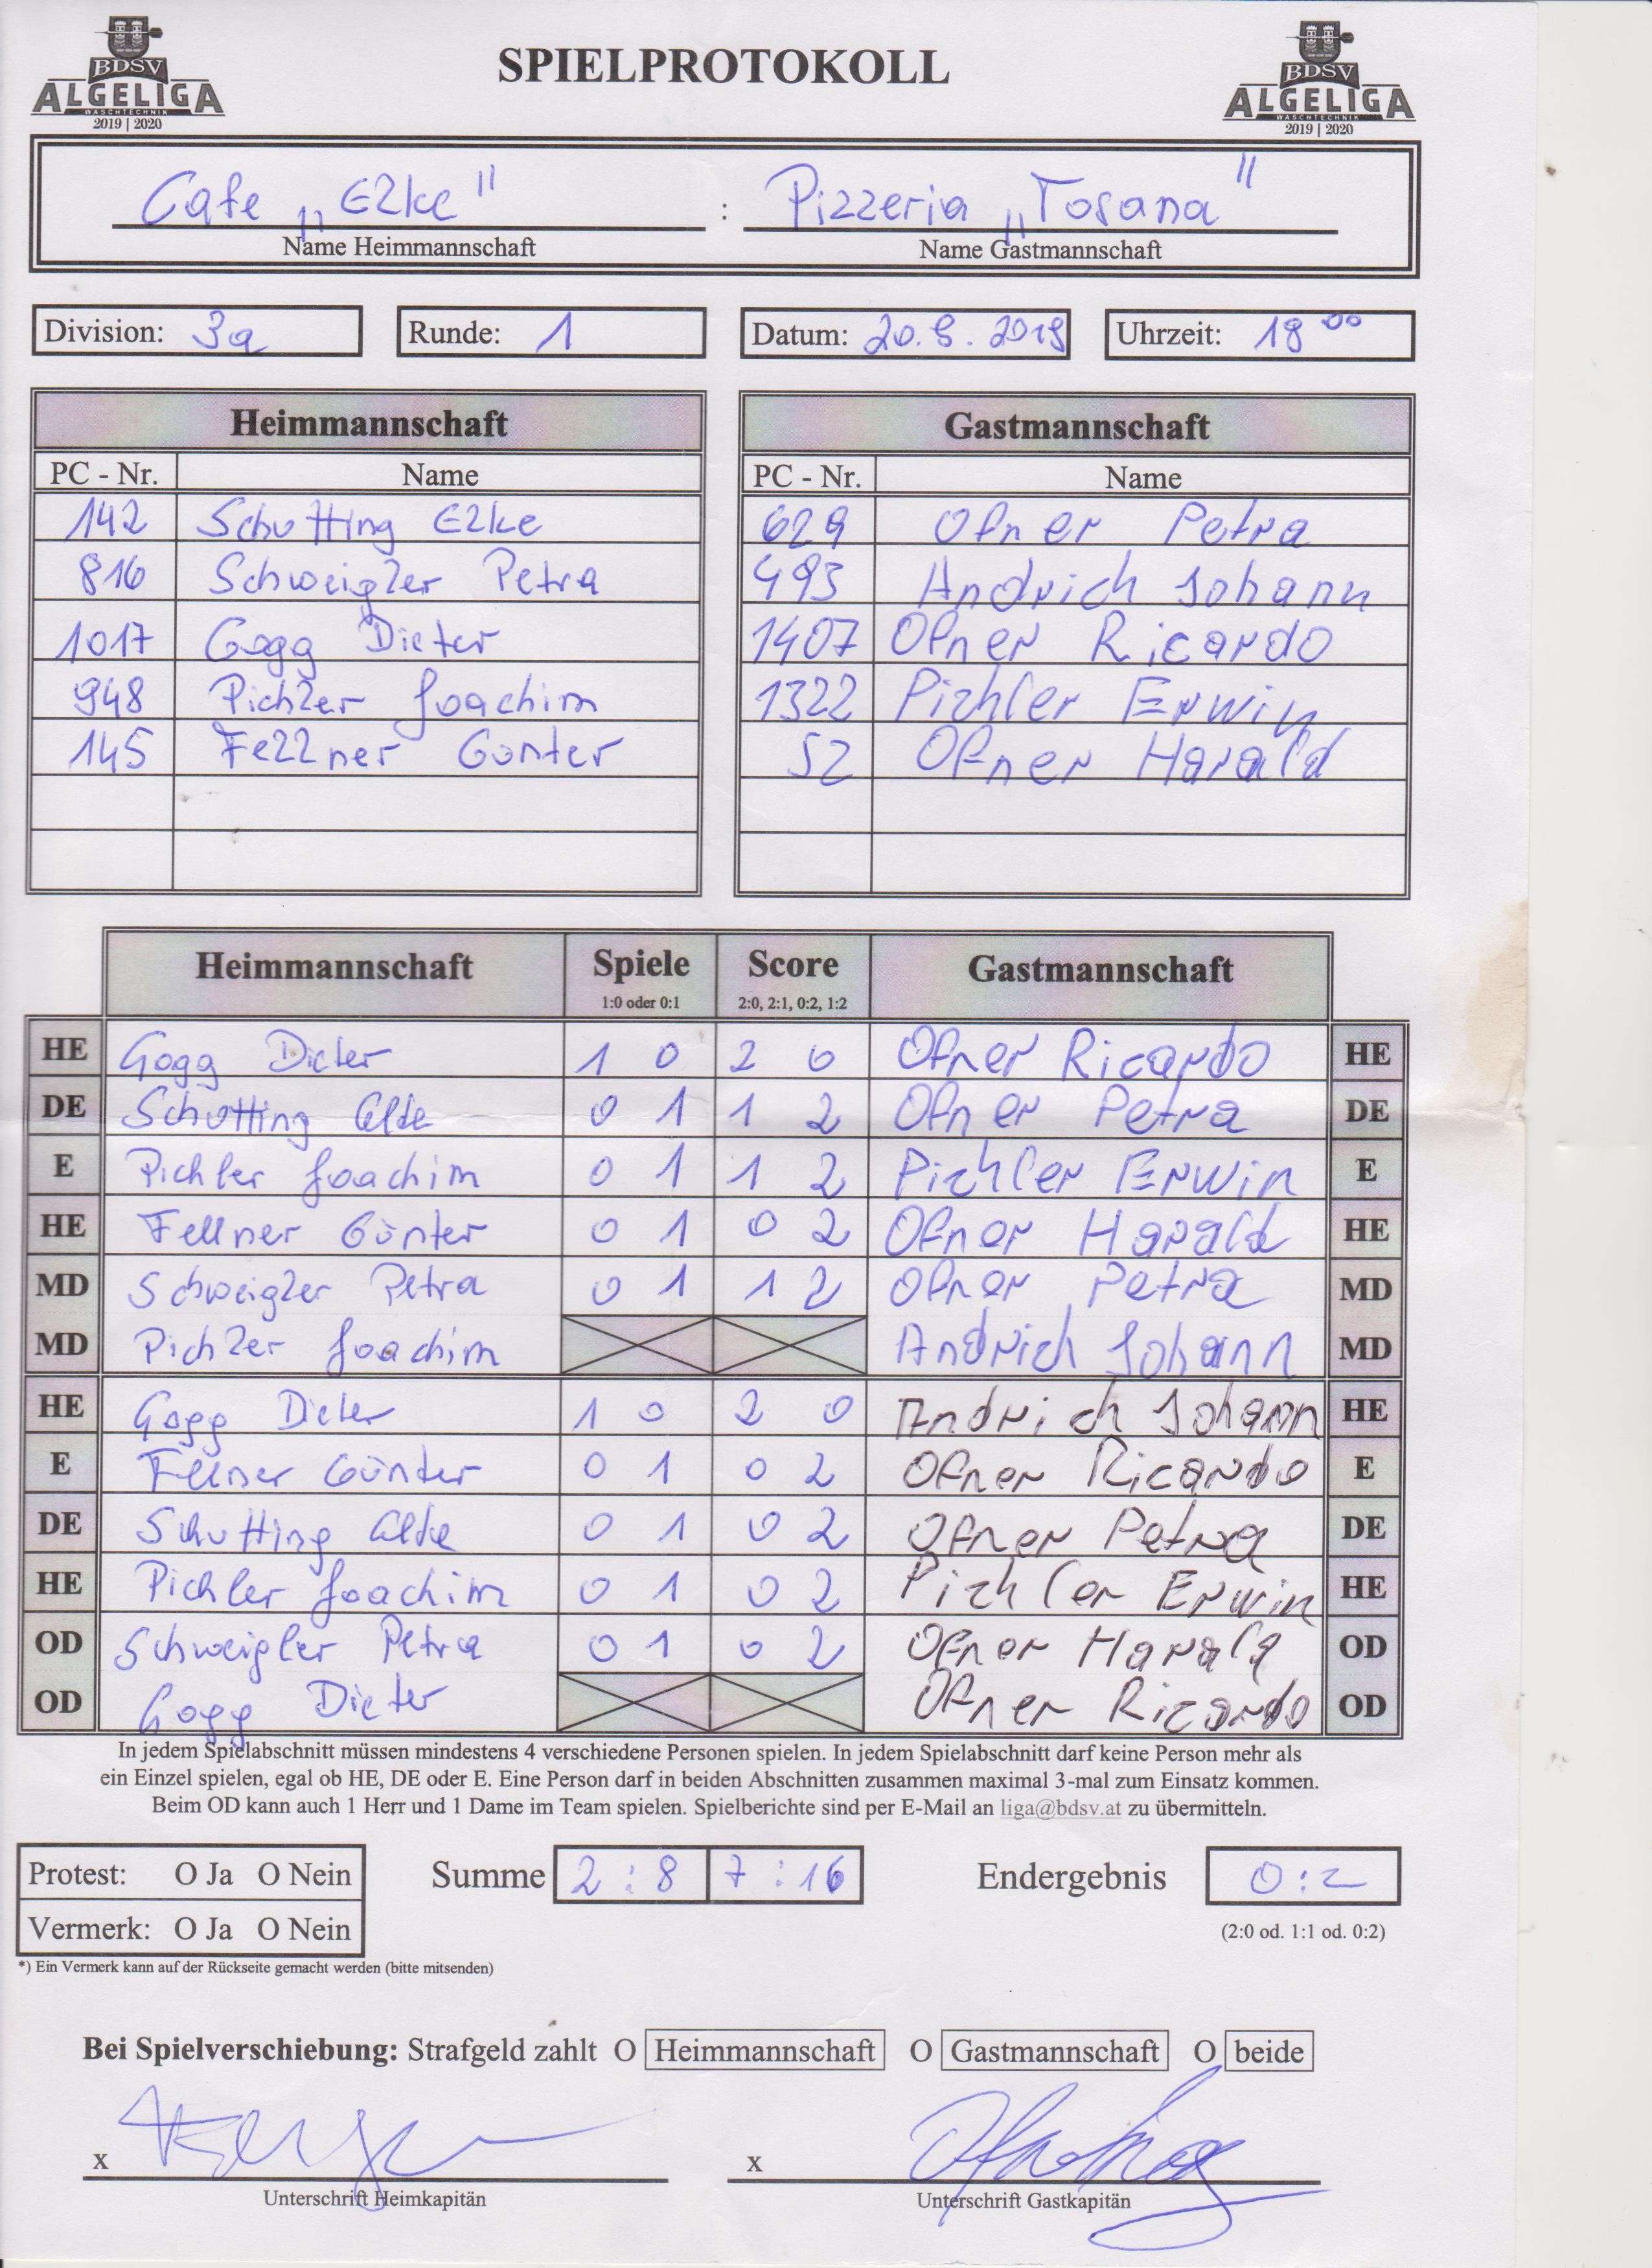 BDSV SPIELPROTOKOLL BDSV
ALGELIGA ALGELIGA
WASCHTECHNIK WASCHTECHNIK
2019 | 2020 2019 | 2020
Cafe „Elke" : Pizzeria „Tosana"
Name Heimmannschaft Name Gastmannschaft
Division: 3a Runde: 1 Datum: 20.9.2019 Uhrzeit: 18 00
Heimmannschaft Gastmannschaft
PC - Nr. Name PC - Nr. Name
142 Schutting Elke 629 Ofner Petra
816 Schweigler Petra 493 Andrich Johann
1017 Gogg Dieter 1407 Ofner Ricardo
948 Pichler Joachim 1322 Pichler Erwin
145 Fellner Günter 52 Ofner Harald
Heimmannschaft Spiele Score Gastmannschaft
1:0 oder 0:1 2:0, 2:1, 0:2, 1:2
HE Gogg Dieter 1 0 2 0 Ofner Ricardo HE
DE Schutting Elke 0 1 1 2 Ofner Petra DE
E Pichler Joachim 0 1 1 2 Pichler Erwin E
HE Fellner Günter 0 1 0 2 Ofner Harald HE
MD Schweigler Petra 0 1 1 2 Ofner Petra MD
MD Pichler Joachim Andrich Johann MD
HE Gogg Dieter 1 0 2 0 Andrich Johann HE
E Fellner Günter 0 1 0 2 Ofner Ricardo E
DE Schutting Elke 0 1 0 2 Ofner Petra DE
HE Pichler Joachim 0 1 0 2 Pichler Erwin HE
OD Schweigler Petra 0 1 0 2 Ofner Harald OD
OD Gogg Dieter Ofner Ricardo OD
In jedem Spielabschnitt müssen mindestens 4 verschiedene Personen spielen. In jedem Spielabschnitt darf keine Person mehr als
ein Einzel spielen, egal ob HE, DE oder E. Eine Person darf in beiden Abschnitten zusammen maximal 3-mal zum Einsatz kommen.
Beim OD kann auch 1 Herr und 1 Dame im Team spielen. Spielberichte sind per E-Mail an liga@bdsv.at zu übermitteln.
Protest: O Ja O Nein Summe 2 : 8 7 : 16 Endergebnis 0 : 2
Vermerk: O Ja O Nein (2:0 od. 1:1 od. 0:2)
*) Ein Vermerk kann auf der Rückseite gemacht werden (bitte mitsenden)
Bei Spielverschiebung: Strafgeld zahlt O Heimmannschaft O Gastmannschaft O beide
x x
Unterschrift Heimkapitän Unterschrift Gastkapitän